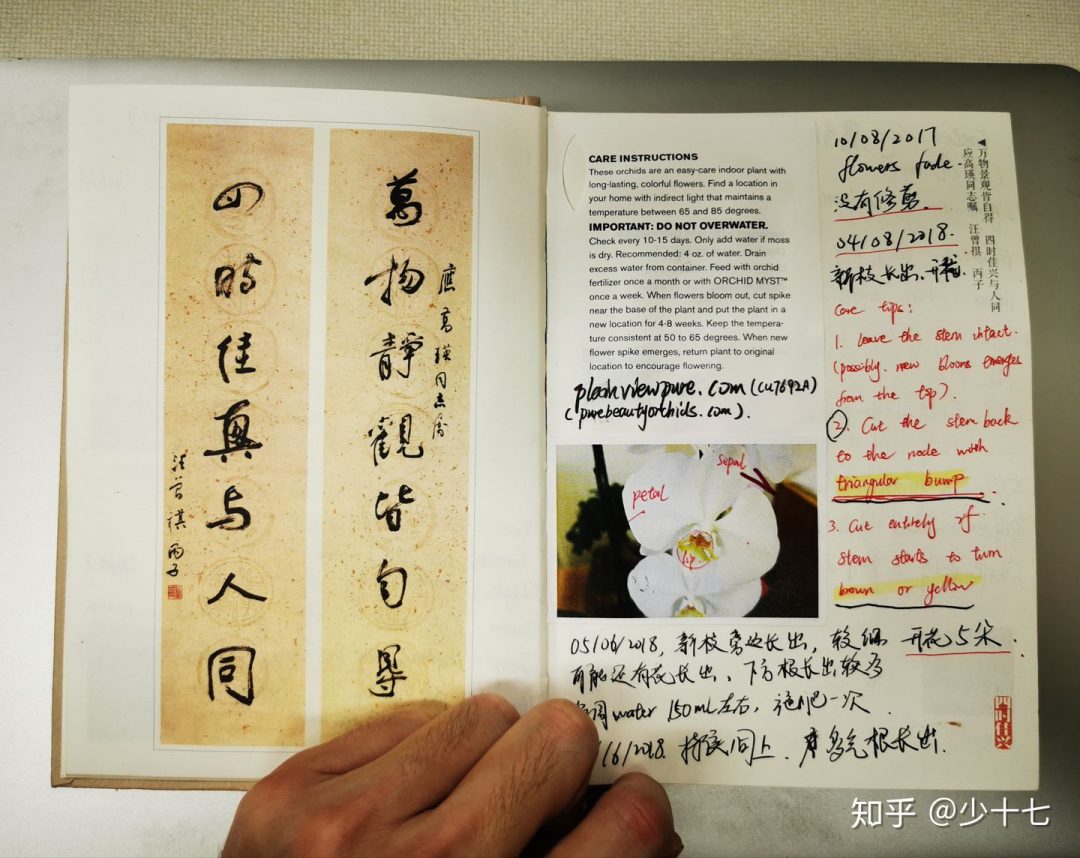 萬物靜觀皆自得
應高瑛同志屬
四時佳興与人同
汪曾祺 丙子
CARE INSTRUCTIONS
These orchids are an easy-care indoor plant with
long-lasting, colorful flowers. Find a location in
your home with indirect light that maintains a
temperature between 65 and 85 degrees.
IMPORTANT: DO NOT OVERWATER.
Check every 10-15 days. Only add water if moss
is dry. Recommended: 4 oz. of water. Drain
excess water from container. Feed with orchid
fertilizer once a month or with ORCHID MYST™
once a week. When flowers bloom out, cut spike
near the base of the plant and put the plant in a
new location for 4-8 weeks. Keep the tempera-
ture consistent at 50 to 65 degrees. When new
flower spike emerges, return plant to original
location to encourage flowering.
(purebeautyorchids.com).
petal
sepal
lip
10/08/2017
flowers fade.
没有修剪.
04/08/2018.
新枝长出、开花.
◀万物景观皆自得 四时佳兴与人同
应高瑛同志嘱 汪曾祺 丙子
Care tips:
1. Leave the stem intact.
(possibly new blooms emerges
from the top).
2. Cut the stem back
to the node with
triangular bump.
3. Cut entirely if
stem starts to turn
brown or yellow
05/06/2018, 新枝旁边长出, 较细 开花5朵.
可能还有花长出、下方根长出较多
周water 150mL左右, 施肥一次.
/6/2018. 同上. 多气根长出.
四时佳兴
知乎 @少十七